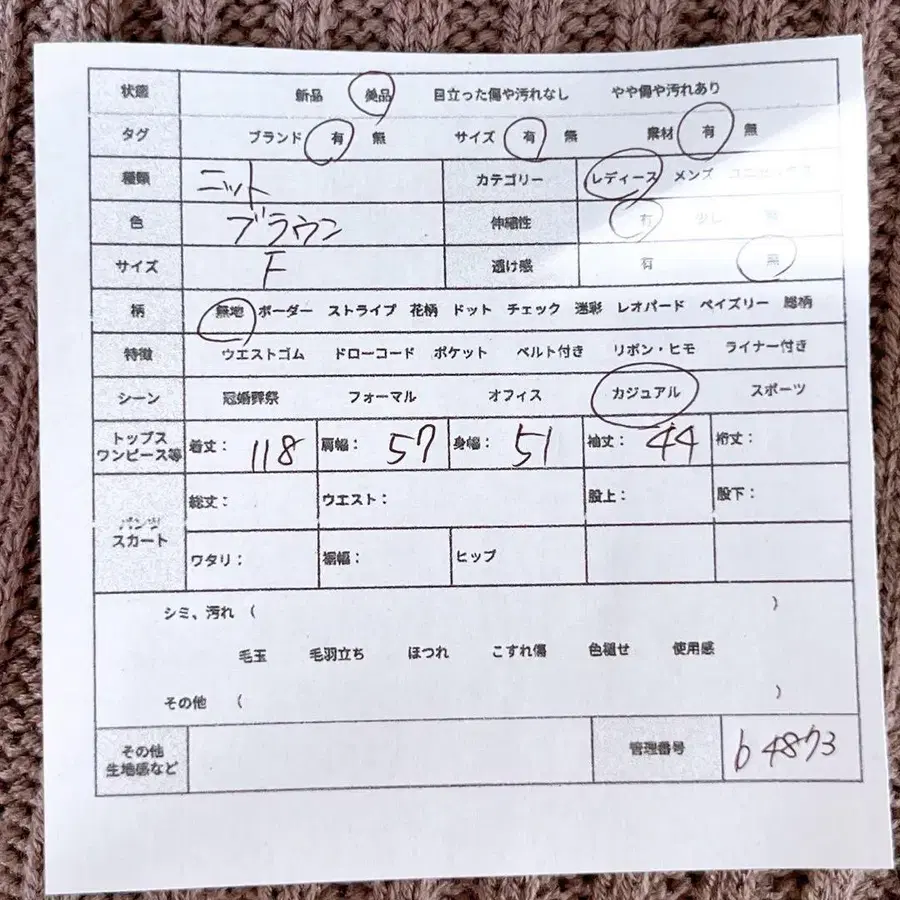 状態 新品 美品 目立った傷や汚れなし やや傷や汚れあり
タグ ブランド 有 無 サイズ 有 無 素材 有 無
種類 ニット カテゴリー レディース メンズ ユニセックス
色 ブラウン 伸縮性 有 少し 無
サイズ F 透け感 有 無
柄 無地 ボーダー ストライプ 花柄 ドット チェック 迷彩 レオパード ペイズリー 総柄
特徴 ウエストゴム ドローコード ポケット ベルト付き リボン・ヒモ ライナー付き
シーン 冠婚葬祭 フォーマル オフィス カジュアル スポーツ
トップス
ワンピース等 着丈: 118 肩幅: 57 身幅: 51 袖丈: 44 裄丈:
パンツ
スカート 総丈: ウエスト: 股上: 股下:
ワタリ: 裾幅: ヒップ
シミ、汚れ ( )
毛玉 毛羽立ち ほつれ こすれ傷 色褪せ 使用感
その他 ( )
その他
生地感など 管理番号 b4873